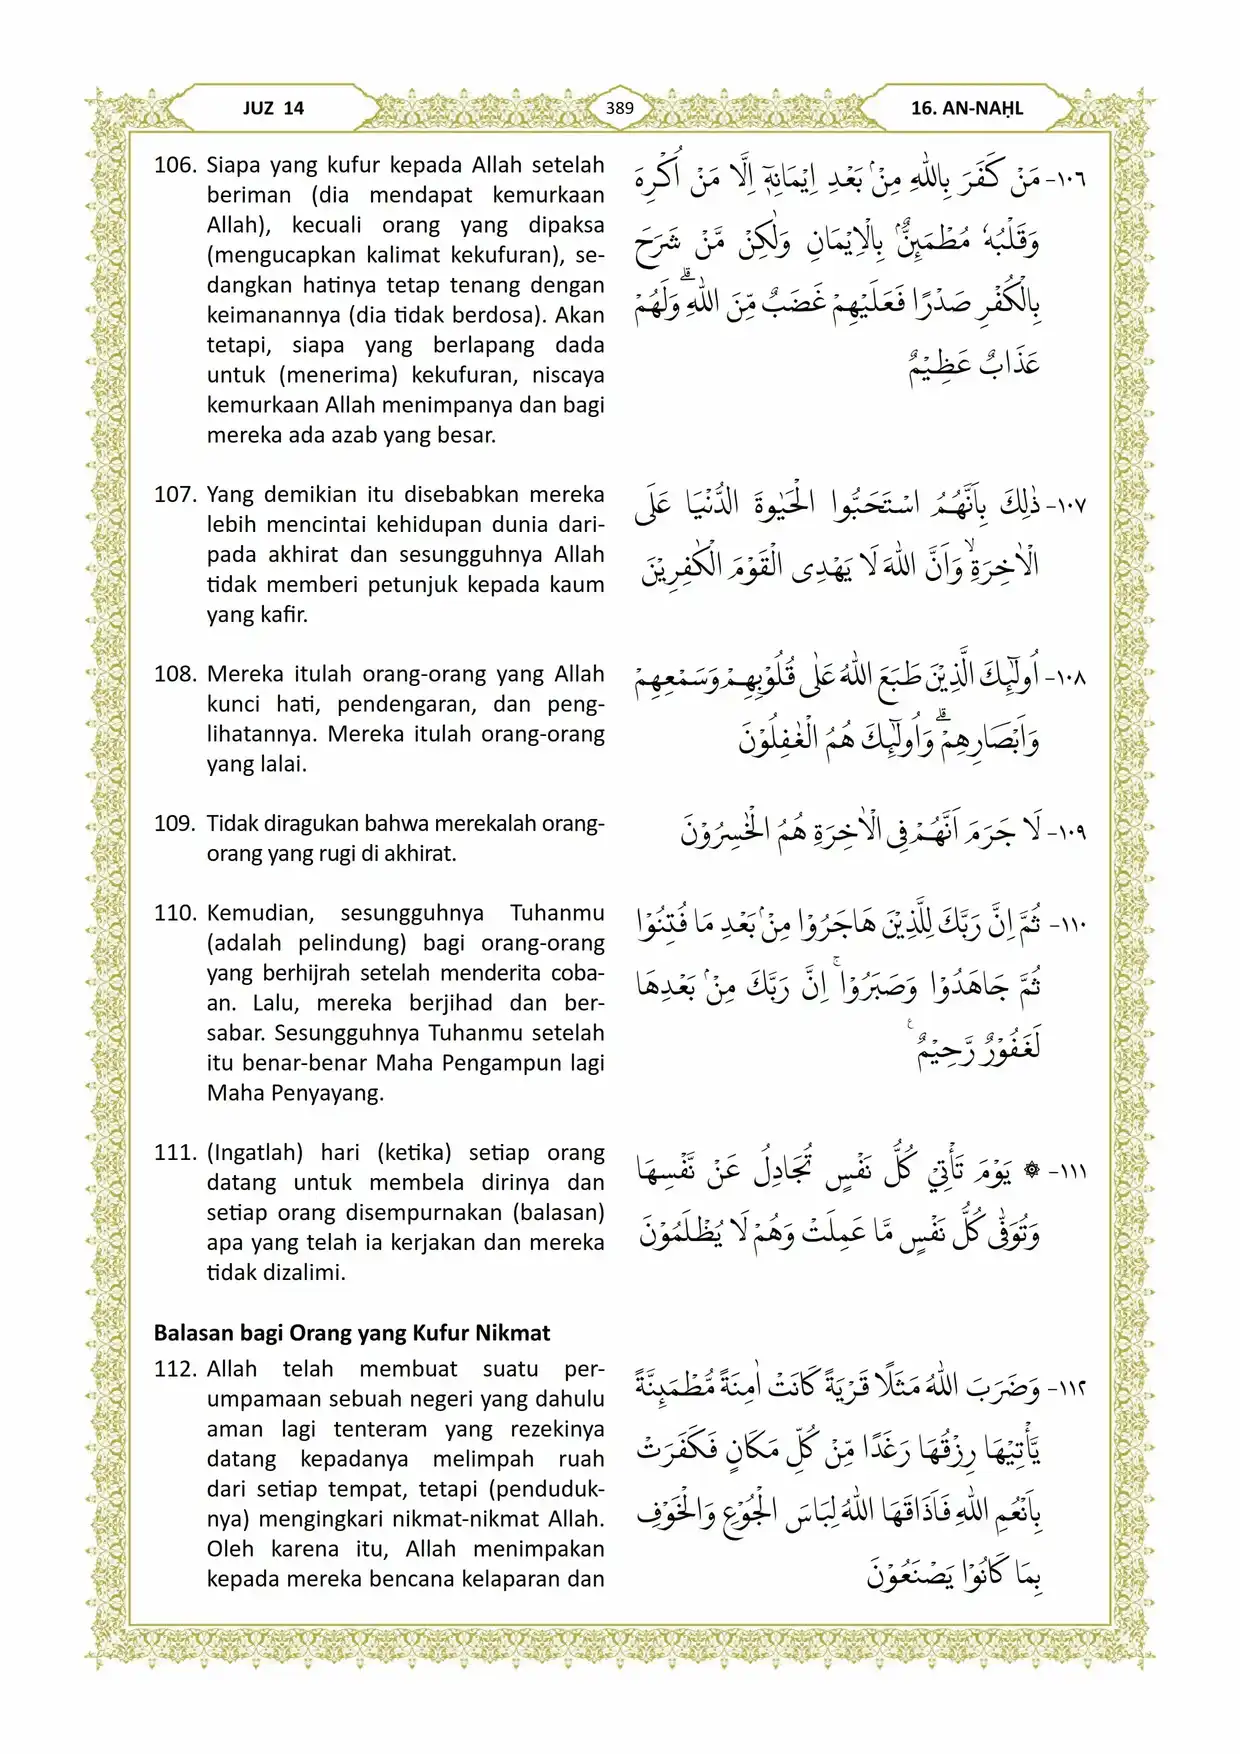 JUZ 14
389
16. AN-NAḤL
106. Siapa yang kufur kepada Allah setelah
beriman (dia mendapat kemurkaan
Allah), kecuali orang yang dipaksa
(mengucapkan kalimat kekufuran), se-
dangkan hatinya tetap tenang dengan
keimanannya (dia tidak berdosa). Akan
tetapi, siapa yang berlapang dada
untuk (menerima) kekufuran, niscaya
kemurkaan Allah menimpanya dan bagi
mereka ada azab yang besar.
١٠٦- مَنْ كَفَرَ بِاللّٰهِ مِنْۢ بَعْدِ اِيْمَانِهٖٓ اِلَّا مَنْ اُكْرِهَ
وَقَلْبُهٗ مُطْمَىِٕنٌّۢ بِالْاِيْمَانِ وَلٰكِنْ مَّنْ شَرَحَ
بِالْكُفْرِ صَدْرًا فَعَلَيْهِمْ غَضَبٌ مِّنَ اللّٰهِ ۗوَلَهُمْ
عَذَابٌ عَظِيْمٌ
107. Yang demikian itu disebabkan mereka
lebih mencintai kehidupan dunia dari-
pada akhirat dan sesungguhnya Allah
tidak memberi petunjuk kepada kaum
yang kafir.
١٠٧- ذٰلِكَ بِاَنَّهُمُ اسْتَحَبُّوا الْحَيٰوةَ الدُّنْيَا عَلَى
الْاٰخِرَةِۙ وَاَنَّ اللّٰهَ لَا يَهْدِى الْقَوْمَ الْكٰفِرِيْنَ
108. Mereka itulah orang-orang yang Allah
kunci hati, pendengaran, dan peng-
lihatannya. Mereka itulah orang-orang
yang lalai.
١٠٨- اُولٰۤىِٕكَ الَّذِيْنَ طَبَعَ اللّٰهُ عَلٰى قُلُوْبِهِمْ وَسَمْعِهِمْ
وَاَبْصَارِهِمْۗ وَاُولٰۤىِٕكَ هُمُ الْغٰفِلُوْنَ
109. Tidak diragukan bahwa merekalah orang-
orang yang rugi di akhirat.
١٠٩- لَا جَرَمَ اَنَّهُمْ فِى الْاٰخِرَةِ هُمُ الْخٰسِرُوْنَ
110. Kemudian, sesungguhnya Tuhanmu
(adalah pelindung) bagi orang-orang
yang berhijrah setelah menderita coba-
an. Lalu, mereka berjihad dan ber-
sabar. Sesungguhnya Tuhanmu setelah
itu benar-benar Maha Pengampun lagi
Maha Penyayang.
١١٠- ثُمَّ اِنَّ رَبَّكَ لِلَّذِيْنَ هَاجَرُوْا مِنْۢ بَعْدِ مَا فُتِنُوْا
ثُمَّ جَاهَدُوْا وَصَبَرُوْاۚ اِنَّ رَبَّكَ مِنْۢ بَعْدِهَا
لَغَفُوْرٌ رَّحِيْمٌ ࣖ
111. (Ingatlah) hari (ketika) setiap orang
datang untuk membela dirinya dan
setiap orang disempurnakan (balasan)
apa yang telah ia kerjakan dan mereka
tidak dizalimi.
١١١- ۞ يَوْمَ تَأْتِيْ كُلُّ نَفْسٍ تُجَادِلُ عَنْ نَّفْسِهَا
وَتُوَفّٰى كُلُّ نَفْسٍ مَّا عَمِلَتْ وَهُمْ لَا يُظْلَمُوْنَ
Balasan bagi Orang yang Kufur Nikmat
112. Allah telah membuat suatu per-
umpamaan sebuah negeri yang dahulu
aman lagi tenteram yang rezekinya
datang kepadanya melimpah ruah
dari setiap tempat, tetapi (penduduk-
nya) mengingkari nikmat-nikmat Allah.
Oleh karena itu, Allah menimpakan
kepada mereka bencana kelaparan dan
١١٢- وَضَرَبَ اللّٰهُ مَثَلًا قَرْيَةً كَانَتْ اٰمِنَةً مُّطْمَىِٕنَّةً
يَّأْتِيْهَا رِزْقُهَا رَغَدًا مِّنْ كُلِّ مَكَانٍ فَكَفَرَتْ
بِاَنْعُمِ اللّٰهِ فَاَذَاقَهَا اللّٰهُ لِبَاسَ الْجُوْعِ وَالْخَوْفِ
بِمَا كَانُوْا يَصْنَعُوْنَ